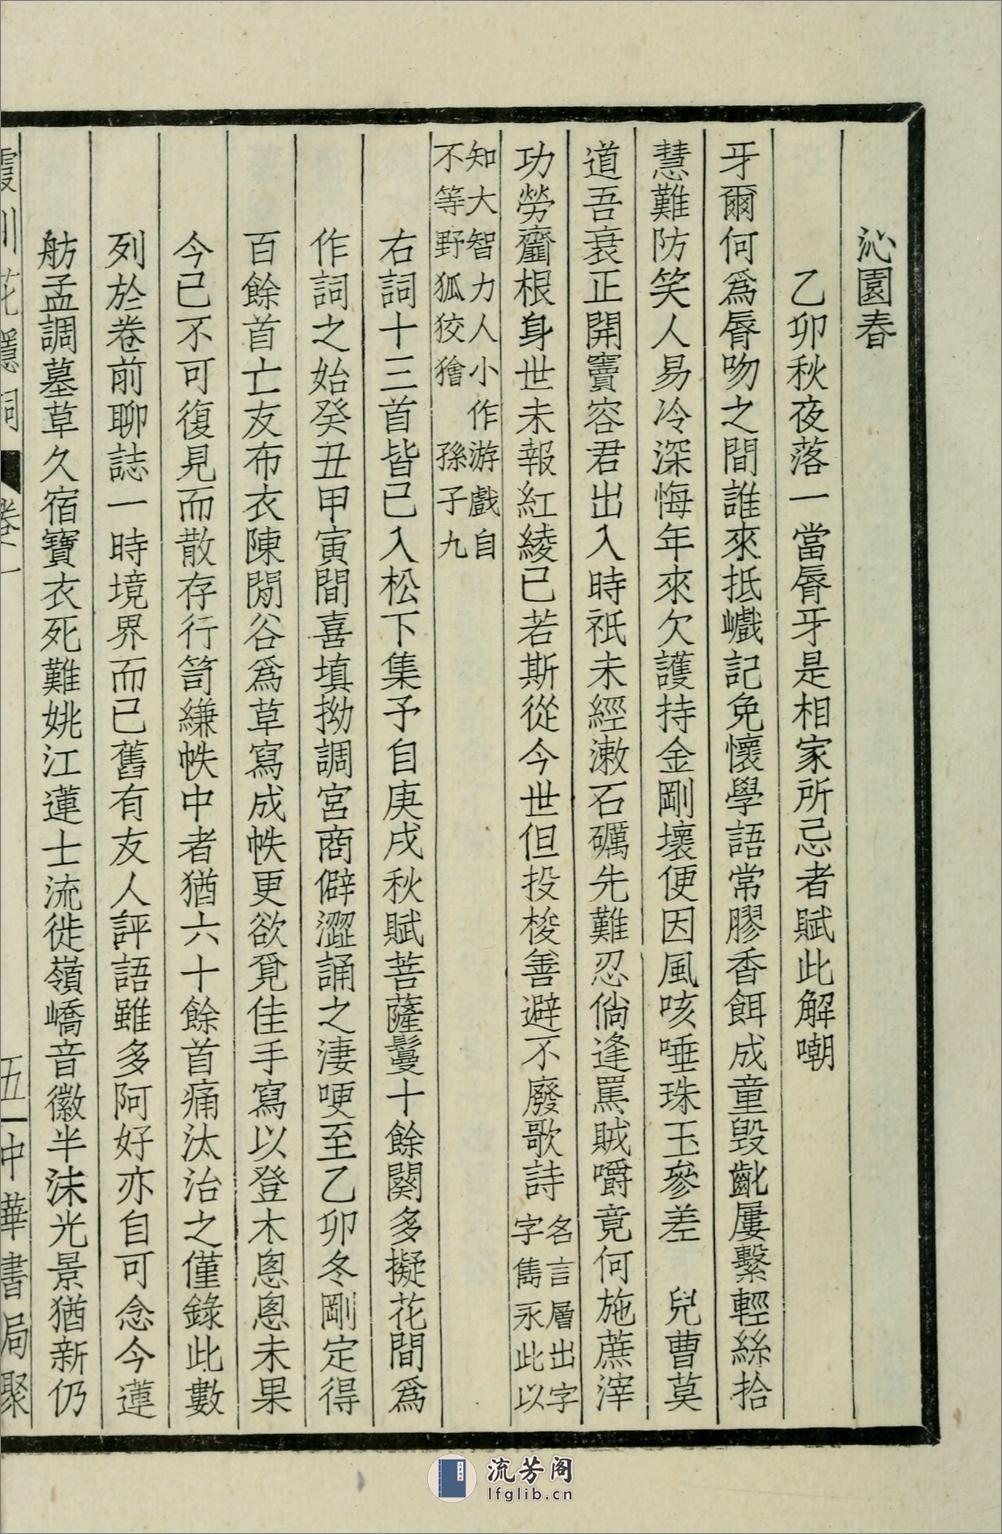 沁園春
乙卯秋夜落一當脣牙是相家所忌者賦此解嘲
牙爾何爲脣吻之間誰來抵巇記免懷學語常膠香餌成童毁齔屢繫輕絲拾
慧難防笑人易冷深悔年來欠護持金剛壞便因風咳唾珠玉參差　兒曹莫
道吾衰正開竇容君出入時祇未經漱石礪先難忍倘逢罵賊嚼竟何施蔗滓
功勞齏根身世未報紅綾已若斯從今世但投梭善避不廢歌詩
名言層出字
字雋永此以
知大智力人小作游戲自
不等野狐狡獪　孫子九
右詞十三首皆已入松下集予自庚戌秋賦菩薩鬘十餘闋多擬花間爲
作詞之始癸丑甲寅間喜填拗調宮商僻澀誦之淒哽至乙卯冬剛定得
百餘首亡友布衣陳閒谷爲草寫成帙更欲覓佳手寫以登木悤悤未果
今已不可復見而散存行笥縑帙中者猶六十餘首痛汰治之僅錄此數
列於卷前聊誌一時境界而已舊有友人評語雖多阿好亦自可念今蓮
舫孟調墓草久宿寶衣死難姚江蓮士流徙嶺嶠音徽半沬光景猶新仍
霞川花隱詞　卷一　五　中華書局聚
流芳阁
lfglib.cn